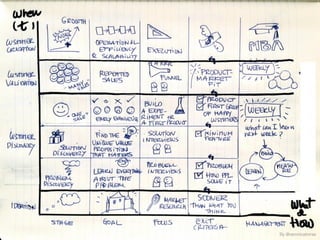 when
(t!)
GROWTH
CUSTOMER
CREATION
OPERATIONAL
EFFICIENCY
& SCALABILITY
EXECUTION
MBA
CUSTOMER
VALIDATION
REPEATED
SALES
FUNNEL
PRODUCT-
MARKET
FIT
WEEKLY
ONE
SALE
EARLY
BUILD
A EXPE-
RIMENT OR
A FIRST PRODUCT
PRODUCT
FIRST GROUP
OF HAPPY
CUSTOMERS
WEEKLY
WHAT CAN I SHOW
NEXT WEEK?
CUSTOMER
DISCOVERY
SOLUTION
DISCOVERY
FIND THE
UNIQUE VALUE
PROPOSITION
THAT MATTERS
SOLUTION
INTERVIEWS
MINIMUM
FEATURE
BUILD
MEASURE
LEARN
PROBLEM
DISCOVERY
LEARN EVERYTHING
ABOUT THE
PROBLEM
PROBLEM
INTERVIEWS
PROBLEM
HOW PPL
SOLVE IT
IDEATION
MARKET
RESEARCH
SOONER
THAN WHAT YOU
THINK
What
&
How
STAGE
GOAL
FOCUS
EXIT
CRITERIA
MANAGEMENT